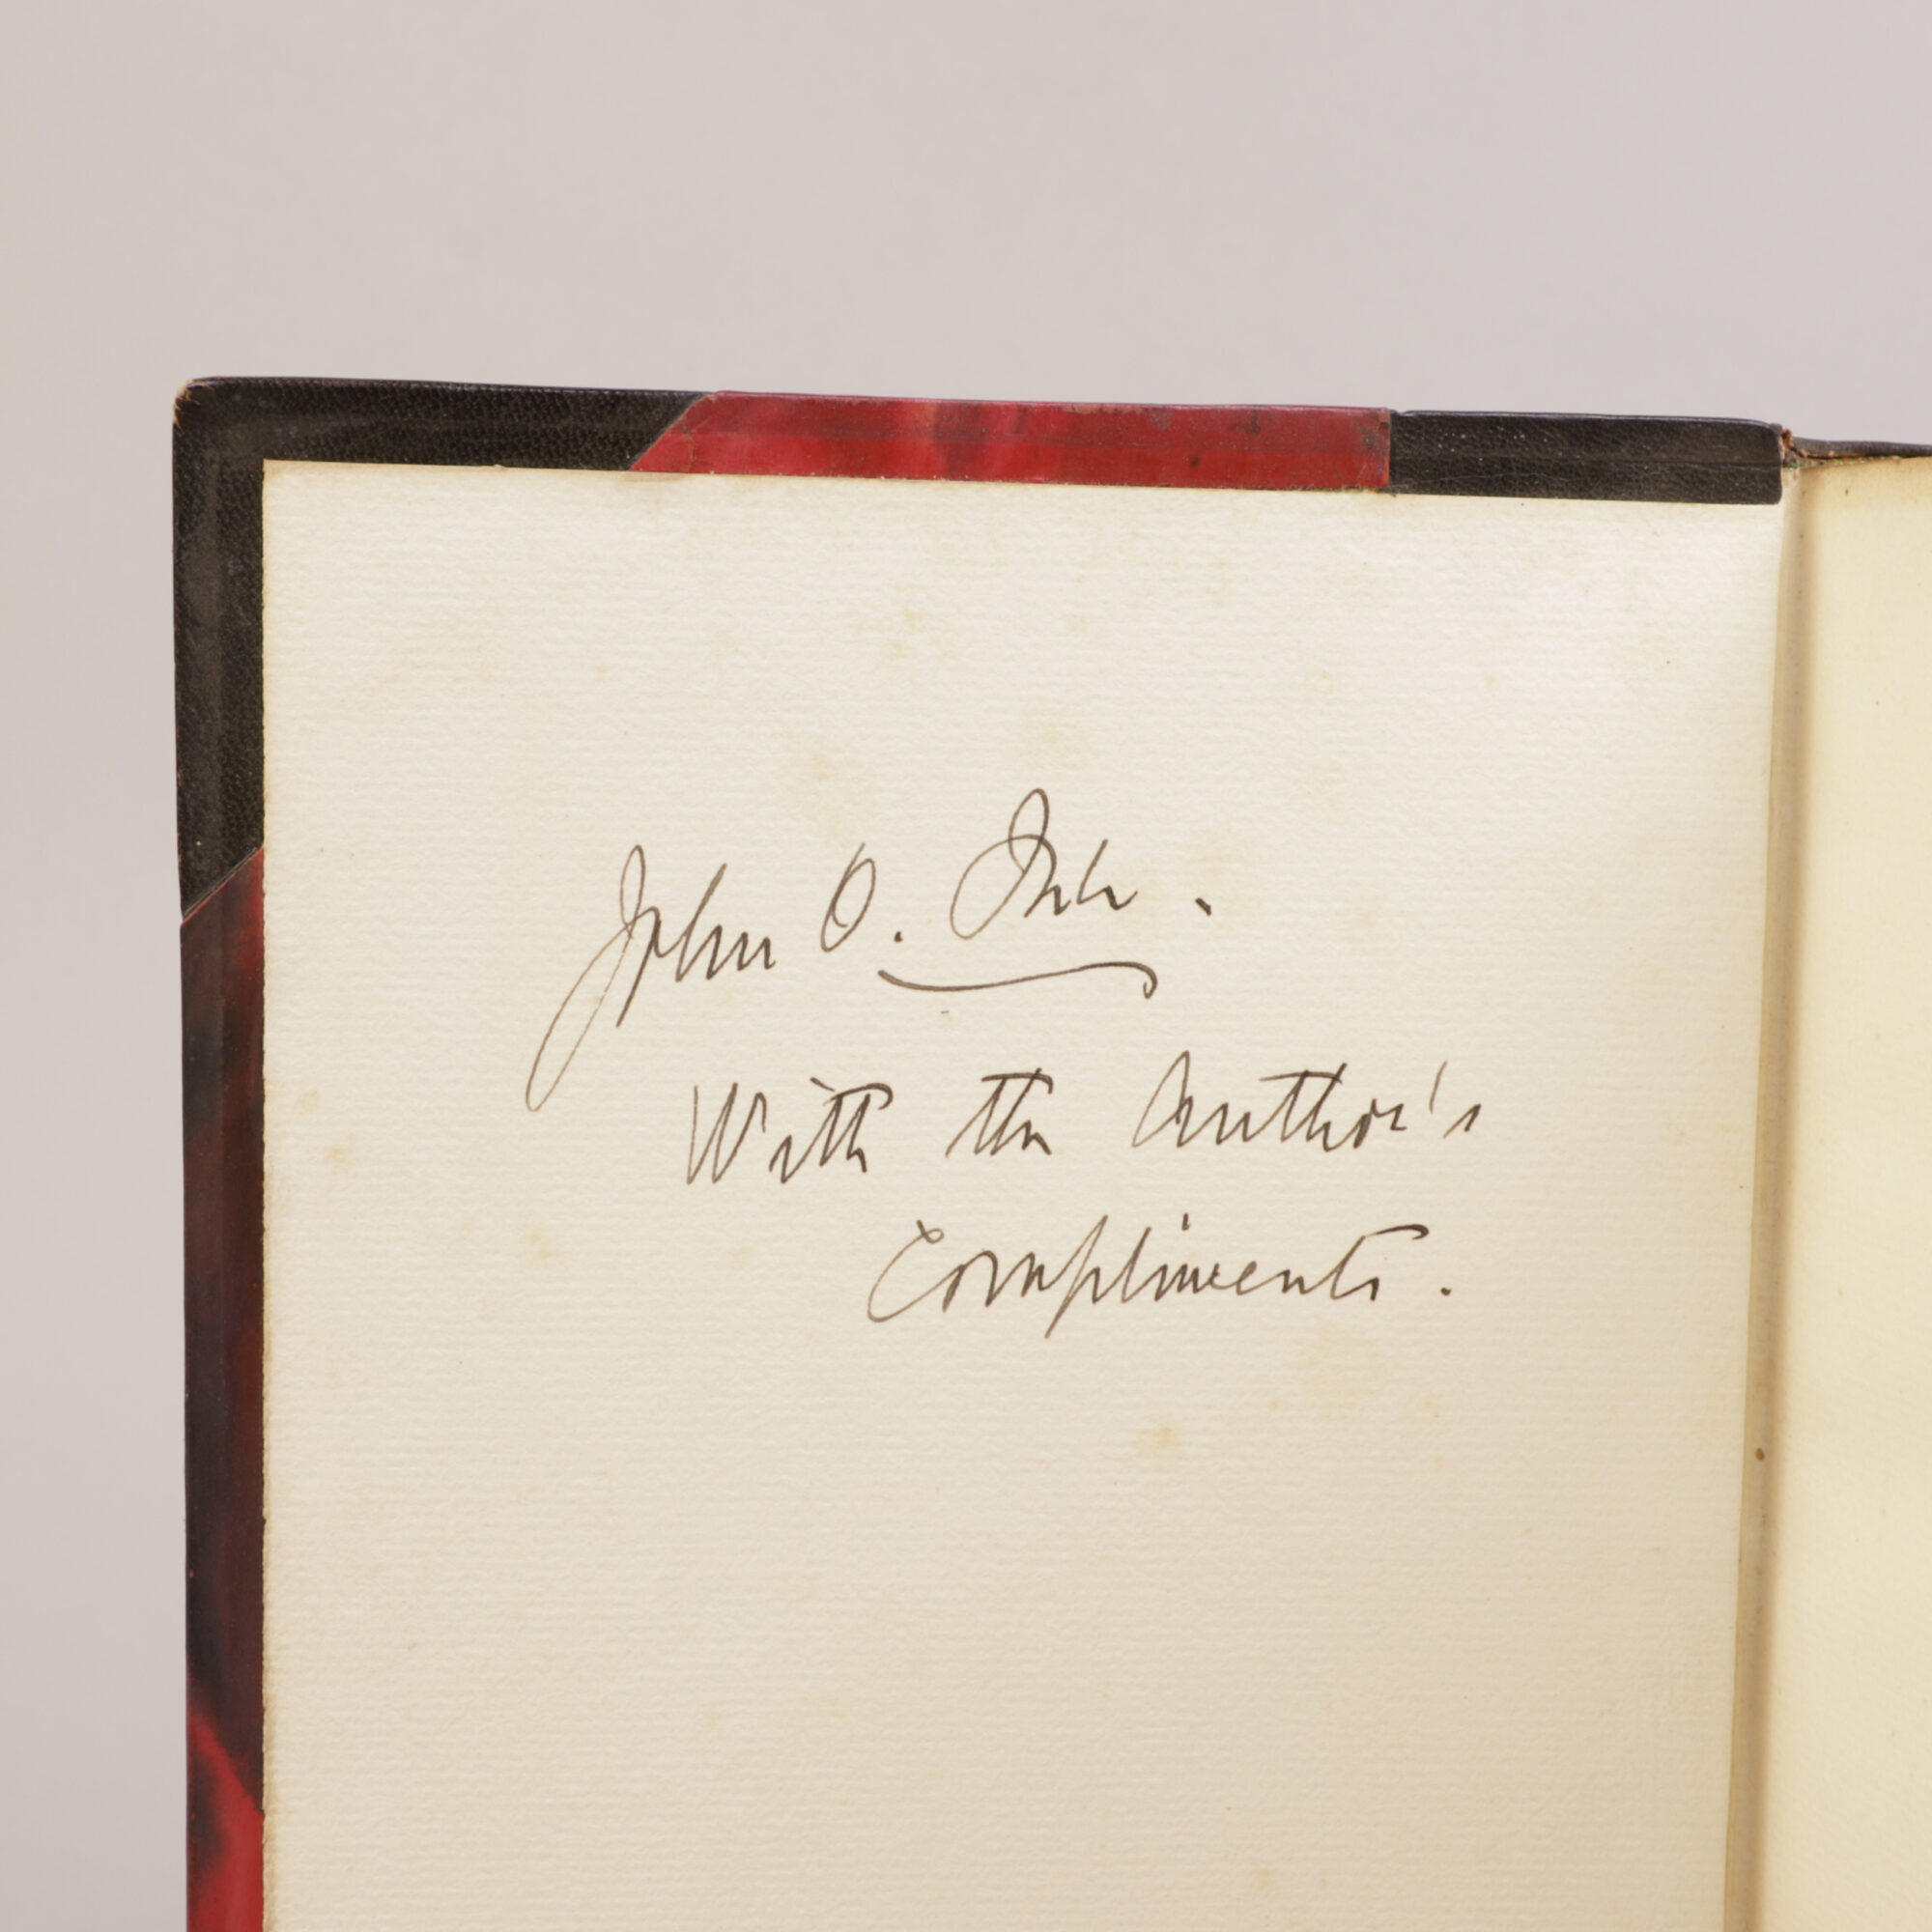 John O.
With the Author's
Compliments.